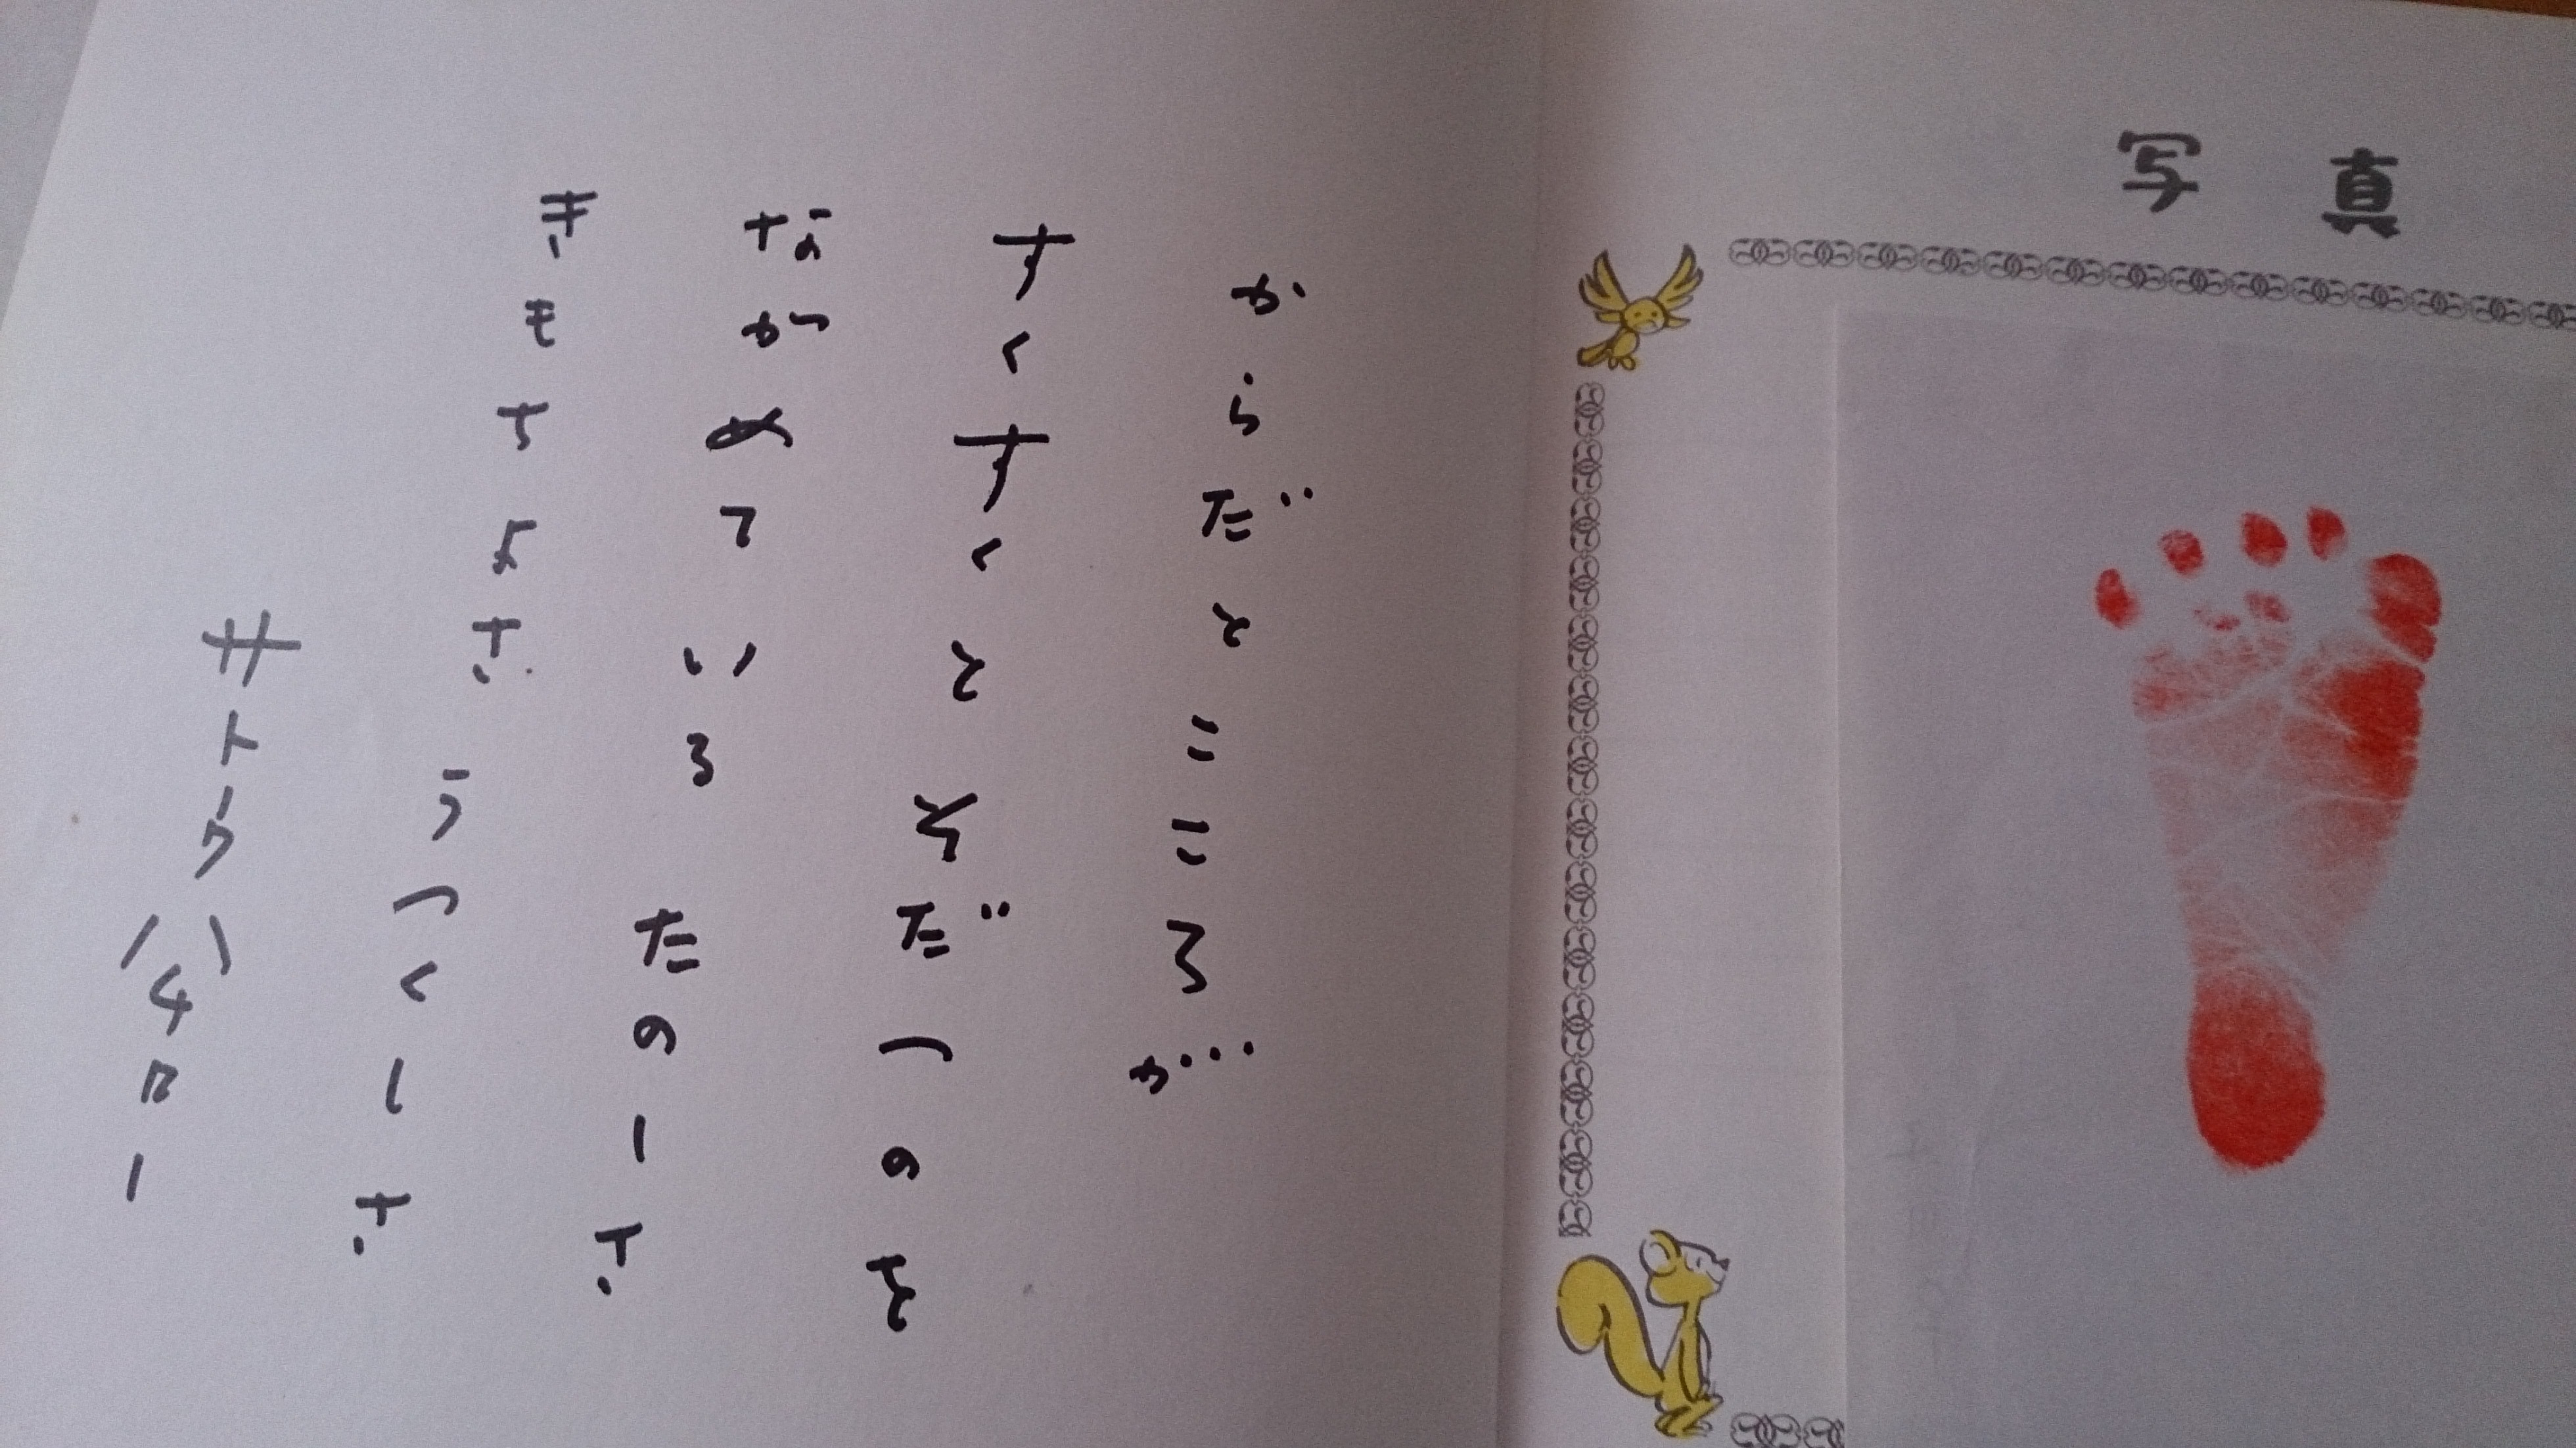 写真
からだとこころが
すくすくとそだつのを
ながめている たのしさ
きもちよさ うつくしさ
サトウハチロー